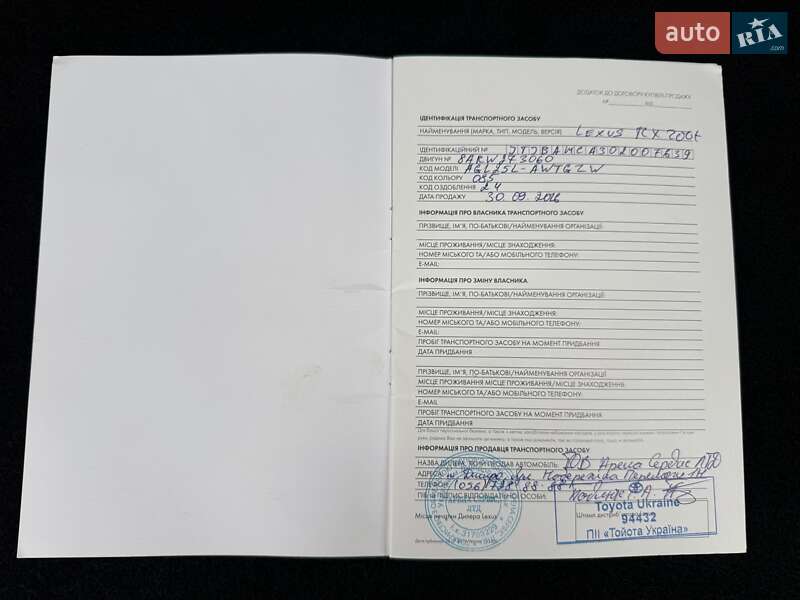 auto RIA.com
ДОДАТОК ДО ДОГОВОРУ КУПІВЛІ-ПРОДАЖУ
№ ВІД
ІДЕНТИФІКАЦІЯ ТРАНСПОРТНОГО ЗАСОБУ
НАЙМЕНУВАННЯ (МАРКА, ТИП, МОДЕЛЬ, ВЕРСІЯ) LEXUS RX 200t
ІДЕНТИФІКАЦІЙНИЙ № JTJBAMCA302007639
ДВИГУН № 8ARW273060
КОД МОДЕЛІ AGL25L-AWTGZW
КОД КОЛЬОРУ 085
КОД ОЗДОБЛЕННЯ 24
ДАТА ПРОДАЖУ 30.09.2016
ІНФОРМАЦІЯ ПРО ВЛАСНИКА ТРАНСПОРТНОГО ЗАСОБУ
ПРІЗВИЩЕ, ІМ'Я, ПО-БАТЬКОВІ/НАЙМЕНУВАННЯ ОРГАНІЗАЦІЇ:
МІСЦЕ ПРОЖИВАННЯ/МІСЦЕ ЗНАХОДЖЕННЯ:
НОМЕР МІСЬКОГО ТА/АБО МОБІЛЬНОГО ТЕЛЕФОНУ:
E-MAIL:
ІНФОРМАЦІЯ ПРО ЗМІНУ ВЛАСНИКА
ПРІЗВИЩЕ, ІМ'Я, ПО-БАТЬКОВІ/НАЙМЕНУВАННЯ ОРГАНІЗАЦІЇ:
МІСЦЕ ПРОЖИВАННЯ/МІСЦЕ ЗНАХОДЖЕННЯ:
НОМЕР МІСЬКОГО ТА/АБО МОБІЛЬНОГО ТЕЛЕФОНУ:
E-MAIL:
ПРОБІГ ТРАНСПОРТНОГО ЗАСОБУ НА МОМЕНТ ПРИДБАННЯ
ДАТА ПРИДБАННЯ
ПРІЗВИЩЕ, ІМ'Я, ПО-БАТЬКОВІ/НАЙМЕНУВАННЯ ОРГАНІЗАЦІЇ
МІСЦЕ ПРОЖИВАННЯ МІСЦЕ ПРОЖИВАННЯ/МІСЦЕ ЗНАХОДЖЕННЯ:
НОМЕР МІСЬКОГО ТА/АБО МОБІЛЬНОГО ТЕЛЕФОНУ:
E-MAIL
ПРОБІГ ТРАНСПОРТНОГО ЗАСОБУ НА МОМЕНТ ПРИДБАННЯ
ДАТА ПРИДБАННЯ
ІНФОРМАЦІЯ ПРО ПРОДАВЦЯ ТРАНСПОРТНОГО ЗАСОБУ
НАЗВА ДИЛЕРА, ЯКИЙ ПРОДАВ АВТОМОБІЛЬ: ТОВ Арена Сервіс ЛТД
АДРЕСА: м. Дніпро, вул.
ТЕЛЕФОН: (056) 788-88-88
ПІБ ТА ПІДПИС ВІДПОВІДАЛЬНОЇ ОСОБИ:
Місце печатки Дилера Lexus
Toyota Ukraine
94432
ПІІ «Тойота Україна»